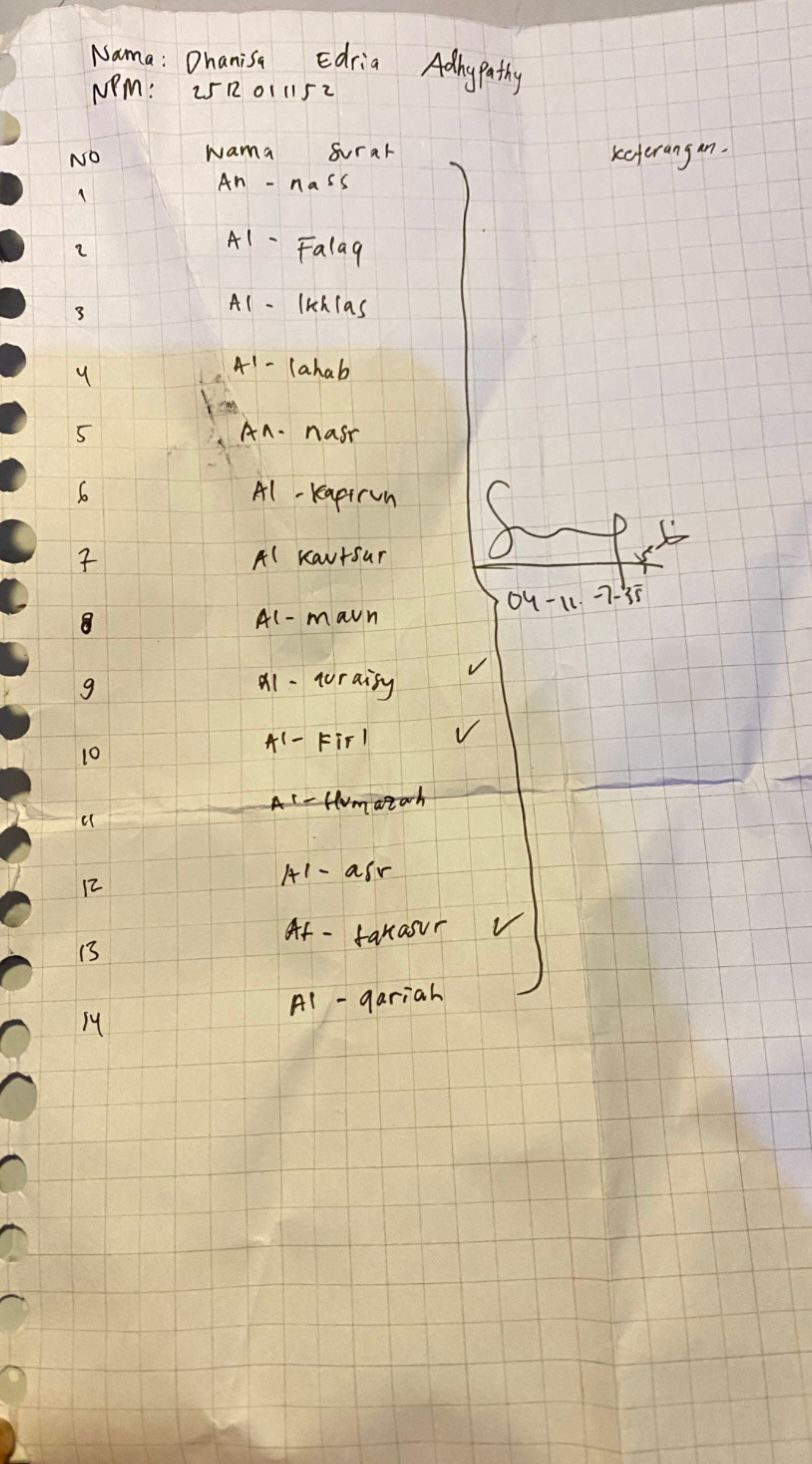 Nama: Dhanisa Edria Adhypathy
NPM: 2512011152
NO Nama Surat Keterangan.
1 An - nass
2 Al - Falaq
3 Al - Ikhlas
4 Al - lahab
5 An - nasr
6 Al - Kapirun
7 Al Kautsur
8 Al - maun
9 Al - quraisy ✓
10 Al - Fill ✓
11 Al - Humazah
12 Al - asr
13 At - takasur ✓
14 Al - qariah
04-11